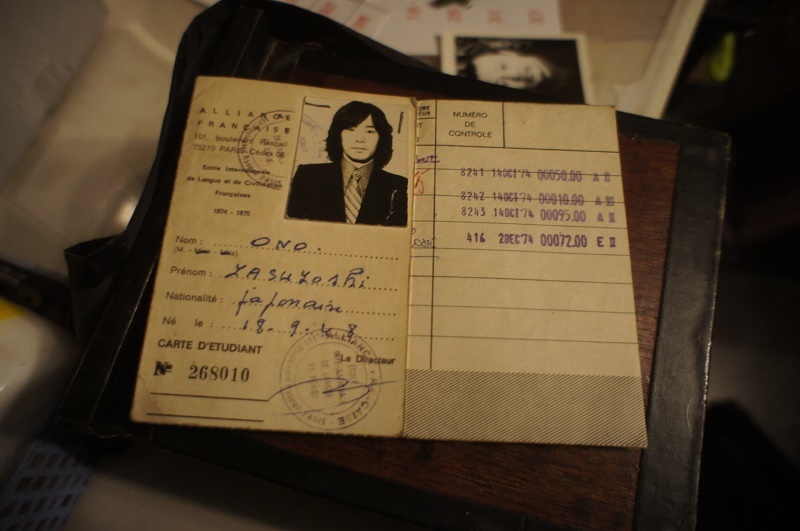 ALLIANCE
FRANÇAISE
101, boulevard Raspail
75270 PARIS Cédex 06
Ecole Internationale
de Langue et de Civilisation
Françaises
1974 - 1975
Nom : ONO.
(M. - Mme - Mlle)
Prénom : YASUYOSHI
Nationalité : japonaise
Né le : 18. 9. 48
CARTE D'ETUDIANT
Le Directeur
№ 268010
NUMÉRO
DE
CONTROLE
8241 14OCT'74 00050.00 A II
8242 14OCT'74 00010.00 A II
8243 14OCT'74 00095.00 A II
416 2DEC'74 00072.00 E II